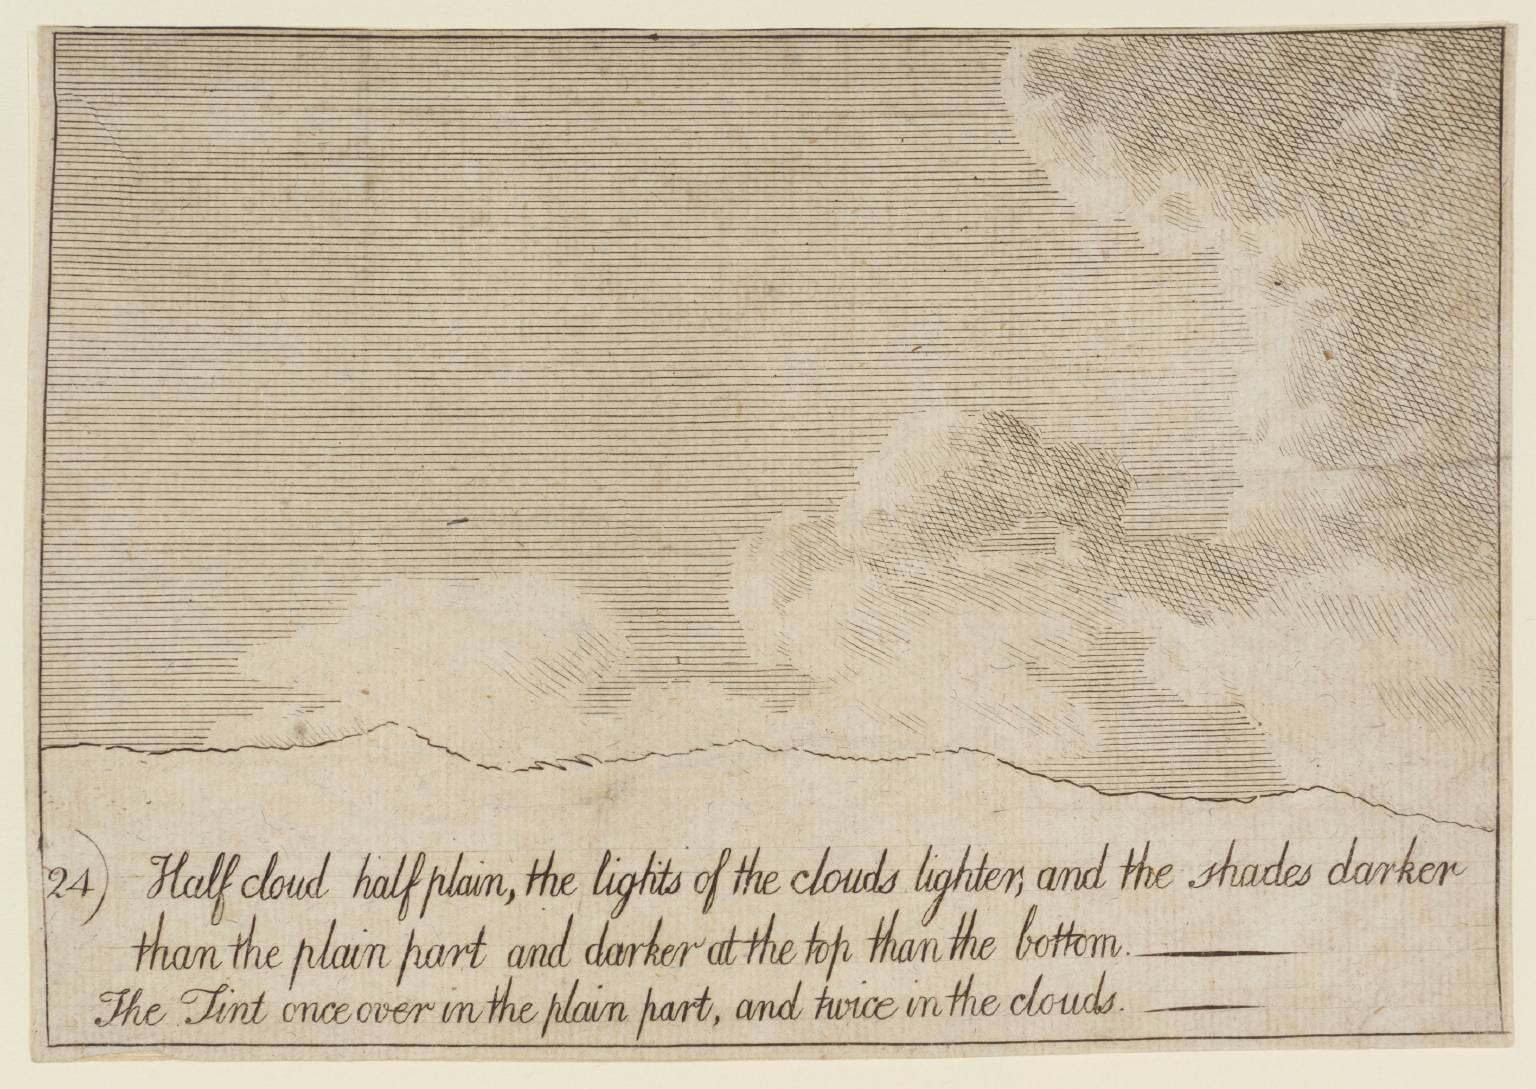 24) Half cloud half plain, the lights of the clouds lighter, and the shades darker
than the plain part and darker at the top than the bottom.
The Tint once over in the plain part, and twice in the clouds.